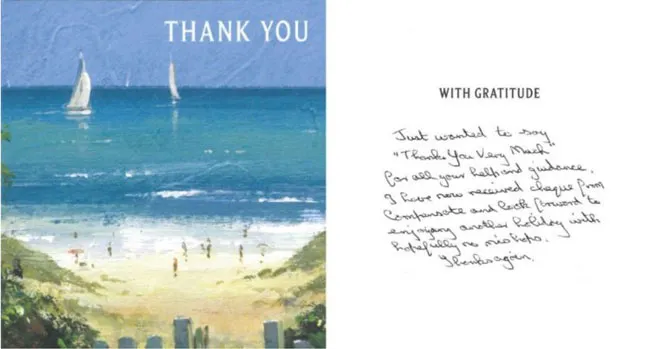 THANK YOU
WITH GRATITUDE
Just wanted to say
"Thank You Very Much"
for all your help and guidance.
I have now received cheque from
Compensate and look forward to
enjoying another holiday with
hopefully no mishaps.
Thanks again.